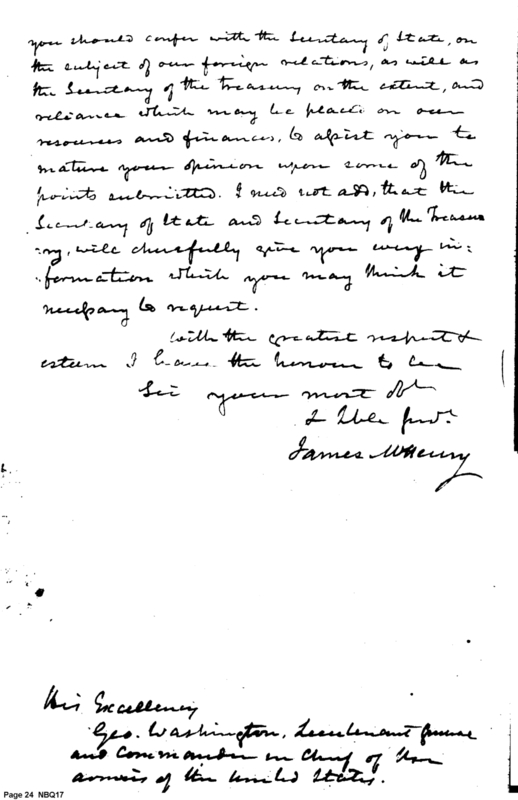 you should confer with the Secretary of State, on
the subject of our foreign relations, as well as
the Secretary of the Treasury on the extent, and
reliance which may be placed on our
resources and finances, to assist you to
mature your opinion upon some of the
points submitted. I need not add, that the
Secretary of State and Secretary of the Treasu
ry, will chearfully give you every in:
:formation which you may think it
necessary to request.
With the greatest respect &
esteem I have the honour to be
Sir your most obt
& Hble servt.
James McHenry
His Excellency
Geo. Washington, Lieutenant General
and Commander in Chief of the
armies of the United States.
Page 24 NBQ17